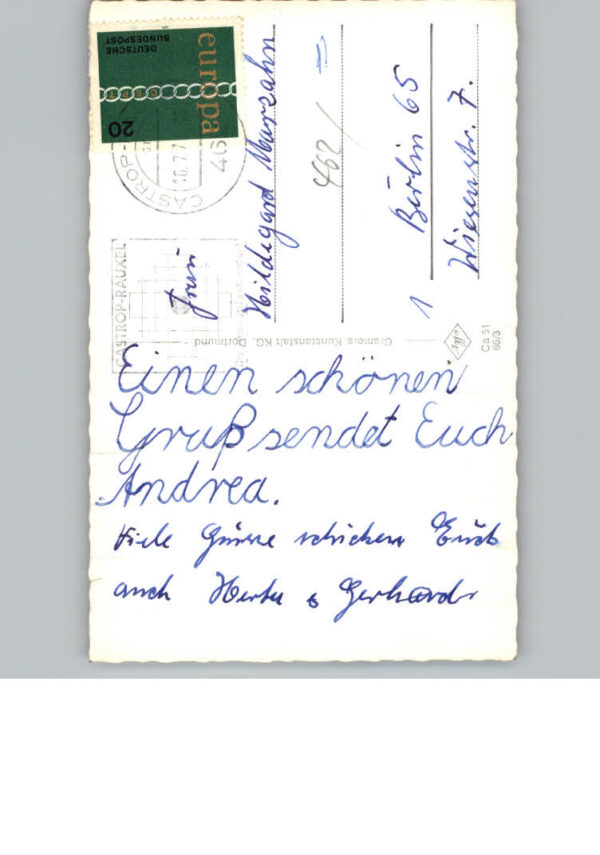 Einen schönen
Gruß sendet Euch
Andrea.
Viele Grüsse schicken Euch
auch Herta & Gerhard
Frau
Hildegard Marzahn
1 Berlin 65
Wiesenstr. 7.
462/
DEUTSCHE
BUNDESPOST
europa
20
CASTROP-
46
16.7.7
CASTROP-RAUXEL
Cramers Kunstanstalt KG, Dortmund
Ca 51
66/3